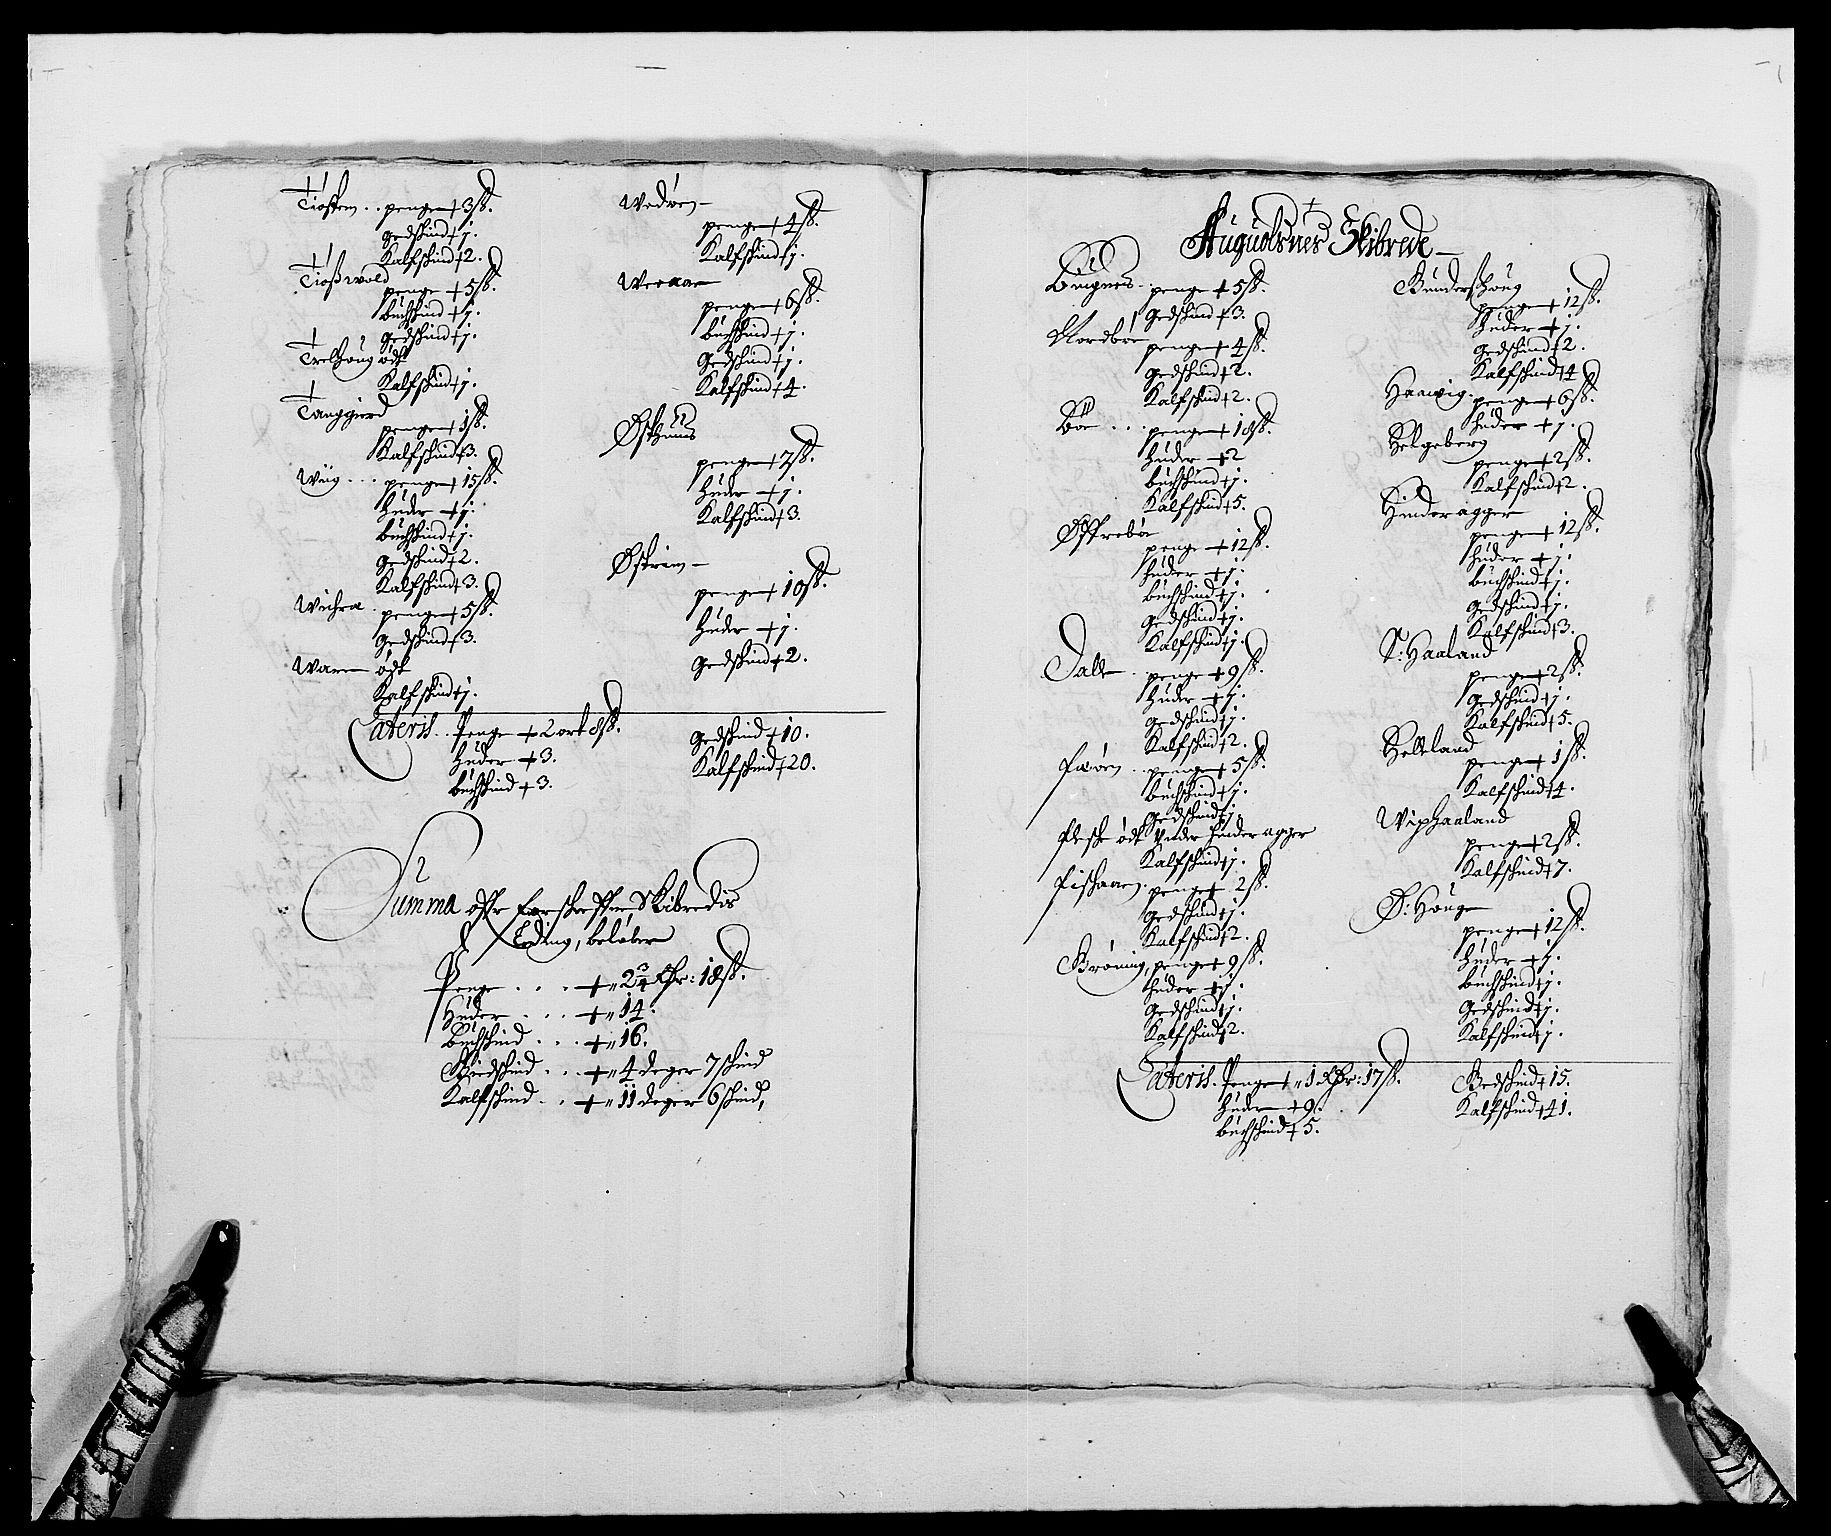 Tiostem .. penge + 3 ß.
gedskind + j.
Kalfskind + 2.
Tioßwold
penge + 5 ß.
buchskind + j.
gedskind + j.
Trelhoug ödt
Kalfskind + j.
Tanggierd
penge + 1 ß.
Kalfskind + 3.
Wiig ... penge + 15 ß.
huder + j.
buchskind + j.
gedskind + 2.
Kalfskind + 3.
Wichra . penge + 5 ß.
gedskind + 3.
Ware ödt
Kalfskind + j.
Wedöen
penge + 4 ß.
Kalfskind + j.
Weraa
penge + 6 ß.
buchskind + j.
gedskind + j.
Kalfskind + 4.
Østhuus
penge + 7 ß.
huder + j.
Kalfskind + 3.
Østrim
penge + 10 ß.
huder + j.
gedskind + 2.
Lateris .. Penge + 2 ort 8 ß.
huder + 3.
buchskind + 3.
gedskind + 10.
Kalfskind + 20.
Summa offr Skibredis
Leding, beløber
Penge . . . + „ 2 3/4 Rdr: 18 ß.
Huder . . . + „ 14.
Buchskind . . . + „ 16.
Giedskind . . . + „ 4 deger 7 skind
Kalfskind . . + „ 11 deger 6 skind,
Auguolsnes Skibrede
Buignes . penge + 5 ß.
gedskind + 3.
Nordbøe
penge + 4 ß.
gedskind + 2.
Kalfskind + 2.
Böe ... penge + 18 ß.
huder + 2
buchskind + j.
Kalfskind + 5.
Øffreböe
penge + 12 ß.
huder + j.
buchskind + j.
gedskind + j.
Kalfskind + j.
Dalle . penge + 9 ß.
huder + j.
gedskind + j.
Kalfskind + 2.
Faöen .. penge + 5 ß.
buchskind + j.
gedskind + j.
Fleske ödt under hinderagger
Kalfskind + j.
Fischaaen . penge + 2 ß.
gedskind + j.
Kalfskind + 2.
Gröning, penge + 9 ß.
huder + j.
gedskind + j.
Kalfskind + 2.
Gunderßhoug
penge + 12 ß.
huder + j.
gedskind + 2.
Kalfskind + 4
Haawig . penge + 6 ß.
huder + j.
Helgeberg
penge + 2 ß.
Kalfskind + 2.
Hinderagger
penge + 12 ß.
huder + j.
buchskind + j.
gedskind + j.
Kalfskind + 3.
N: Haaland
penge + 2 ß.
gedskind + j.
Kalfskind + 5.
Helleland
penge + 1 ß.
Kalfskind + 4.
Wiphaaland
penge + 2 ß.
Kalfskind + 7.
Ø: Houge
penge + 12 ß.
huder + j.
buchskind + j.
gedskind + j.
Kalfskind + j.
Lateris . Penge + „ 1 Rdr: 17 ß.
huder + 9.
buchskind + 5.
Gedskind + 15.
Kalfskind + 41.